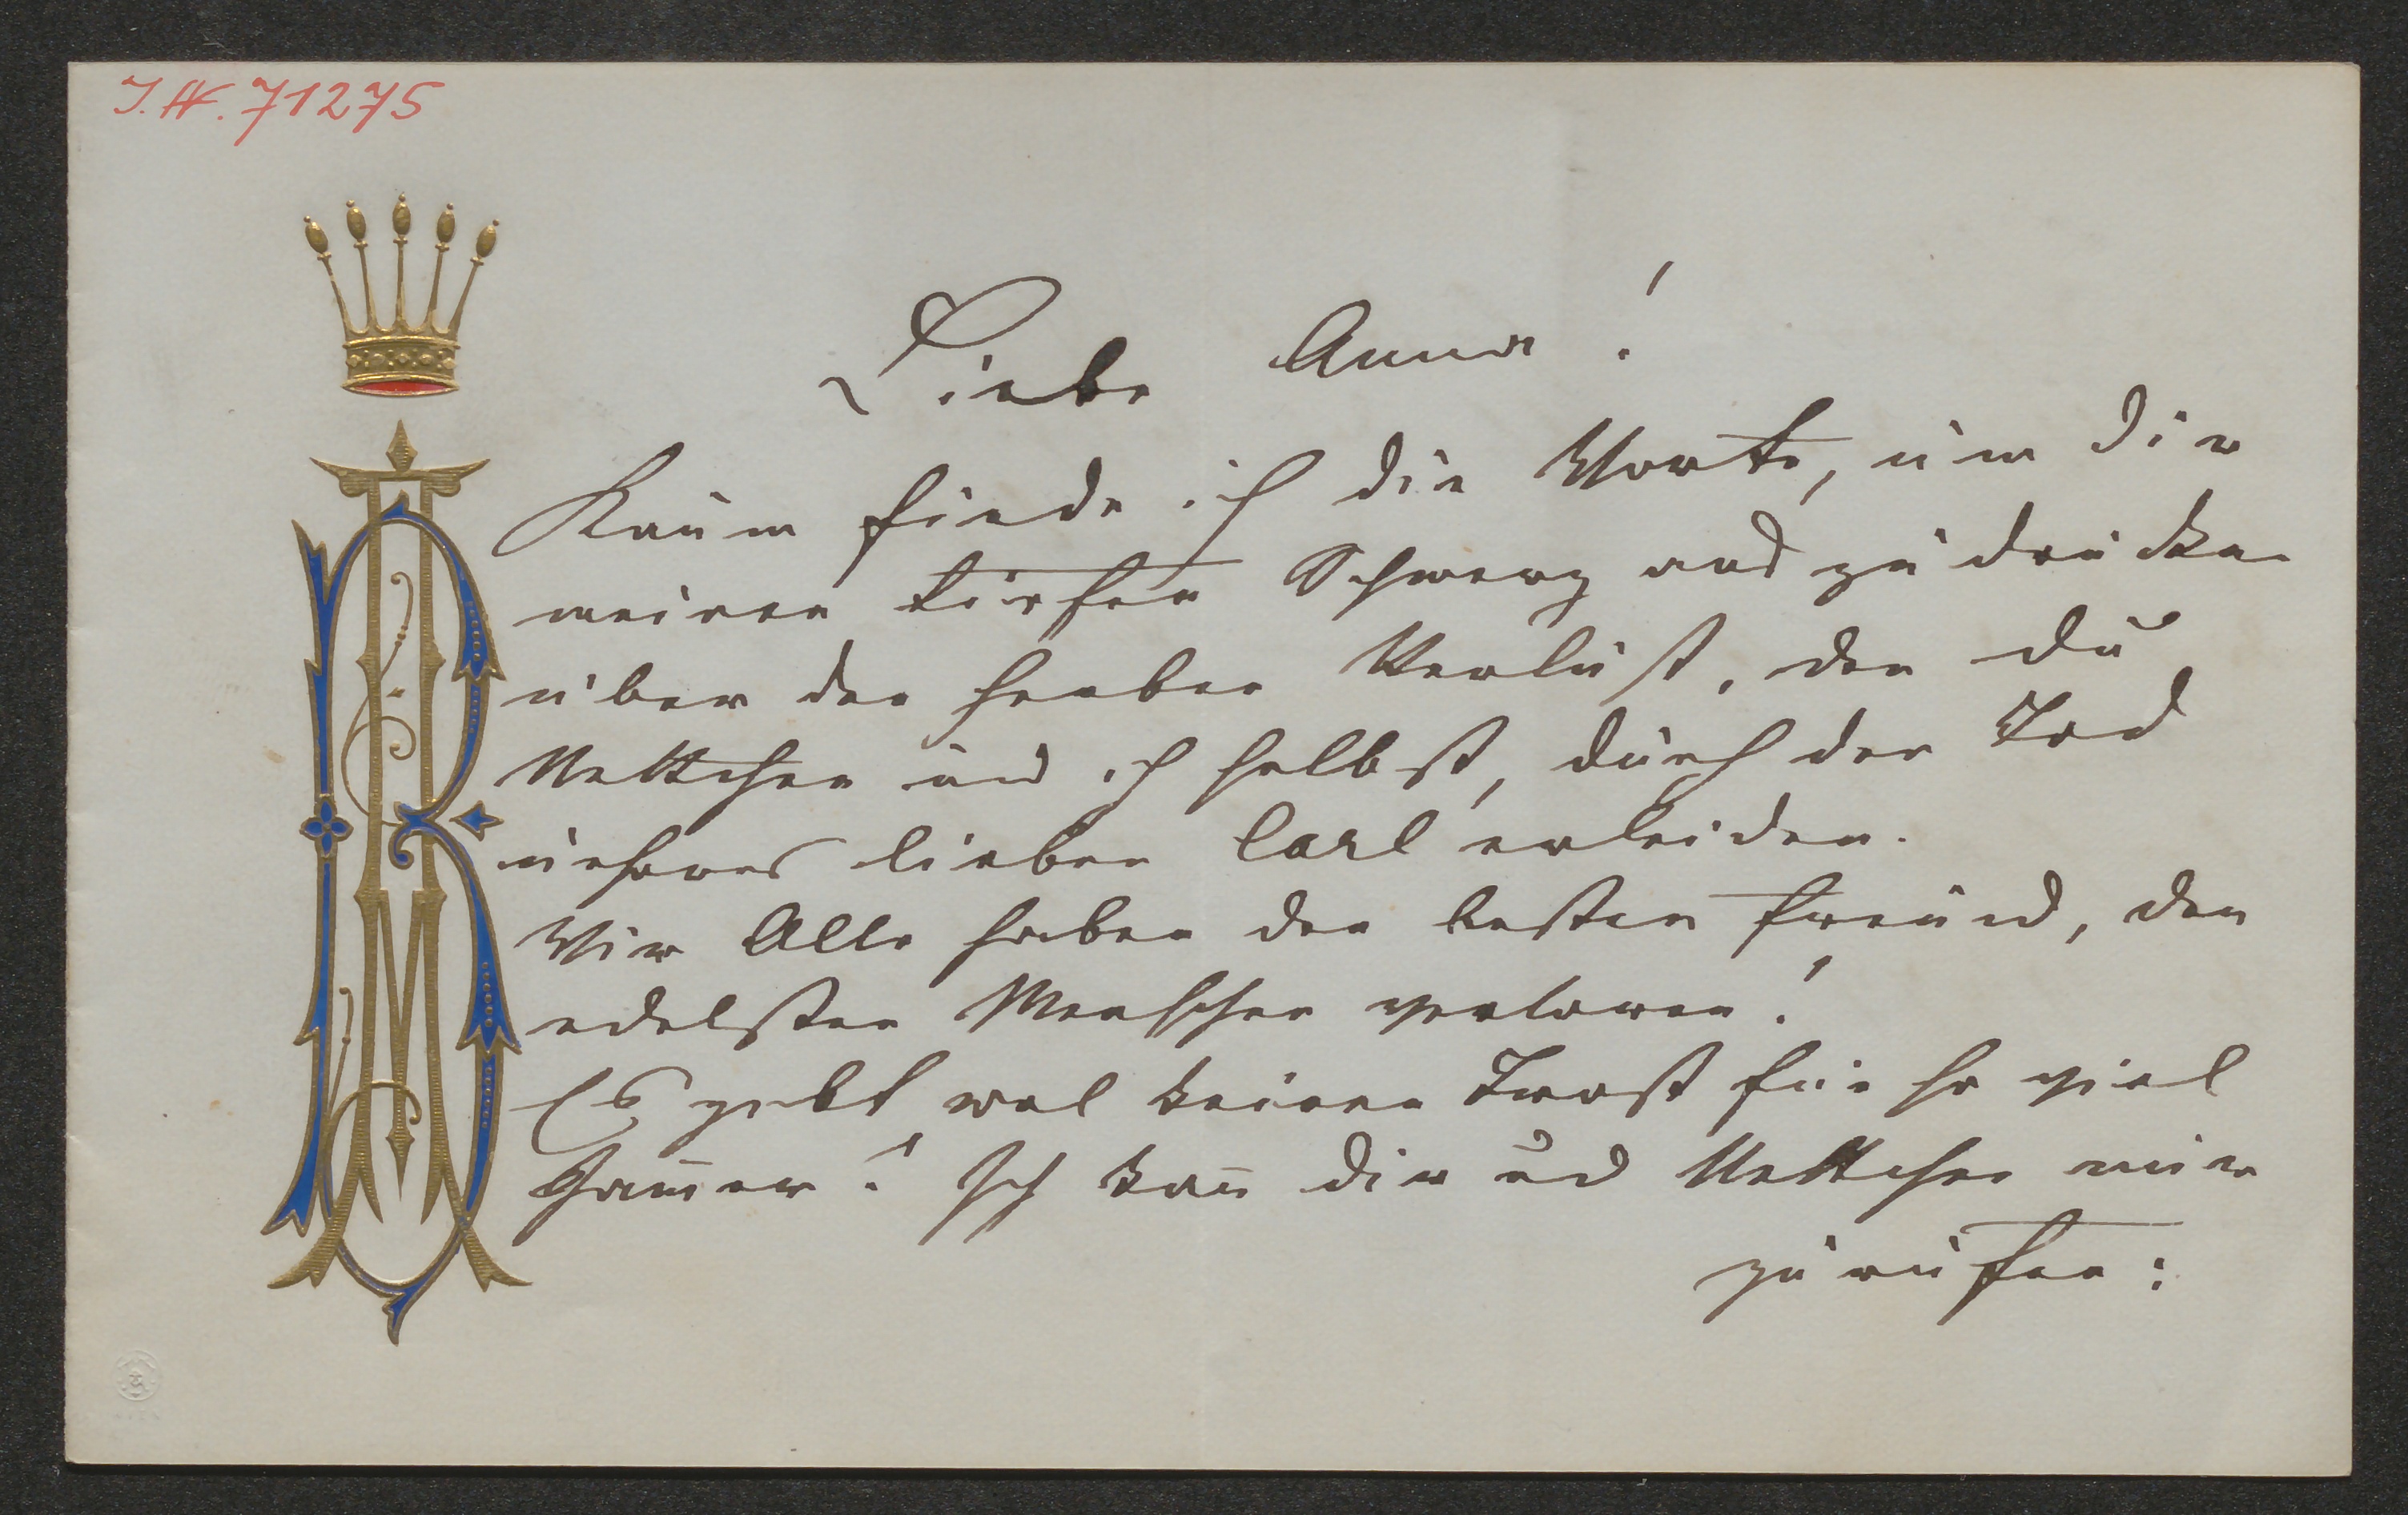 J.N. 71275
Liebe Anna!
Kaum finde ich die Worte, um Dir
meinen tiefen Schmerz aus zu drücken
über den herben Verlust, den Du
Nettchen und ich selbst, durch den Tod
unseres lieben Carl erleiden.
Wir Alle haben den besten Freund, den
edelsten Menschen verloren!
Es giebt wol keinen Trost für so viel
Jam̄er! Ich kan̄ Dir und Nettchen nur
zu rufen: